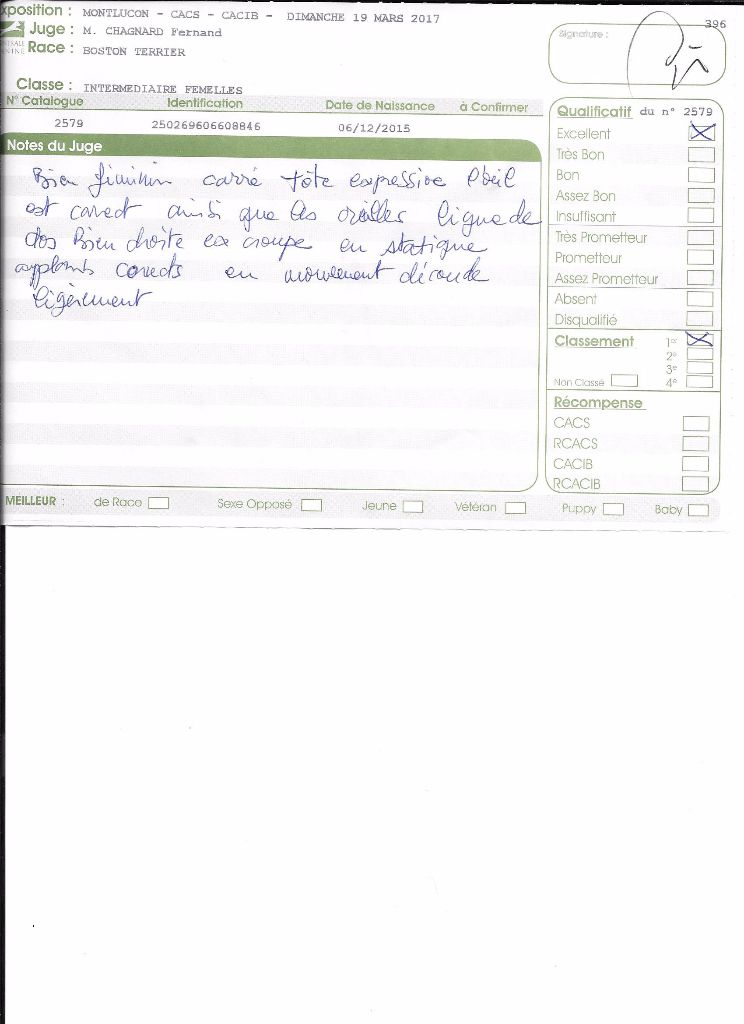 xposition : MONTLUCON - CACS - CACIB - DIMANCHE 19 MARS 2017
396
Juge : M. CHAGNARD Fernand
Race : BOSTON TERRIER
Signature :
Classe : INTERMEDIAIRE FEMELLES
N° Catalogue Identification Date de Naissance à Confirmer
2579 250269606608846 06/12/2015
Notes du Juge
Bien féminin carré tête expressive l'oeil
est correct ainsi que les oreilles ligne de
dos Bien droite la croupe en statique
applombs corrects en mouvement découde
légèrement
Qualificatif du n° 2579
Excellent
Très Bon
Bon
Assez Bon
Insuffisant
Très Prometteur
Prometteur
Assez Prometteur
Absent
Disqualifié
Classement 1er
2e
3e
Non Classé 4e
Récompense
CACS
RCACS
CACIB
RCACIB
MEILLEUR : de Race Sexe Opposé Jeune Vétéran Puppy Baby